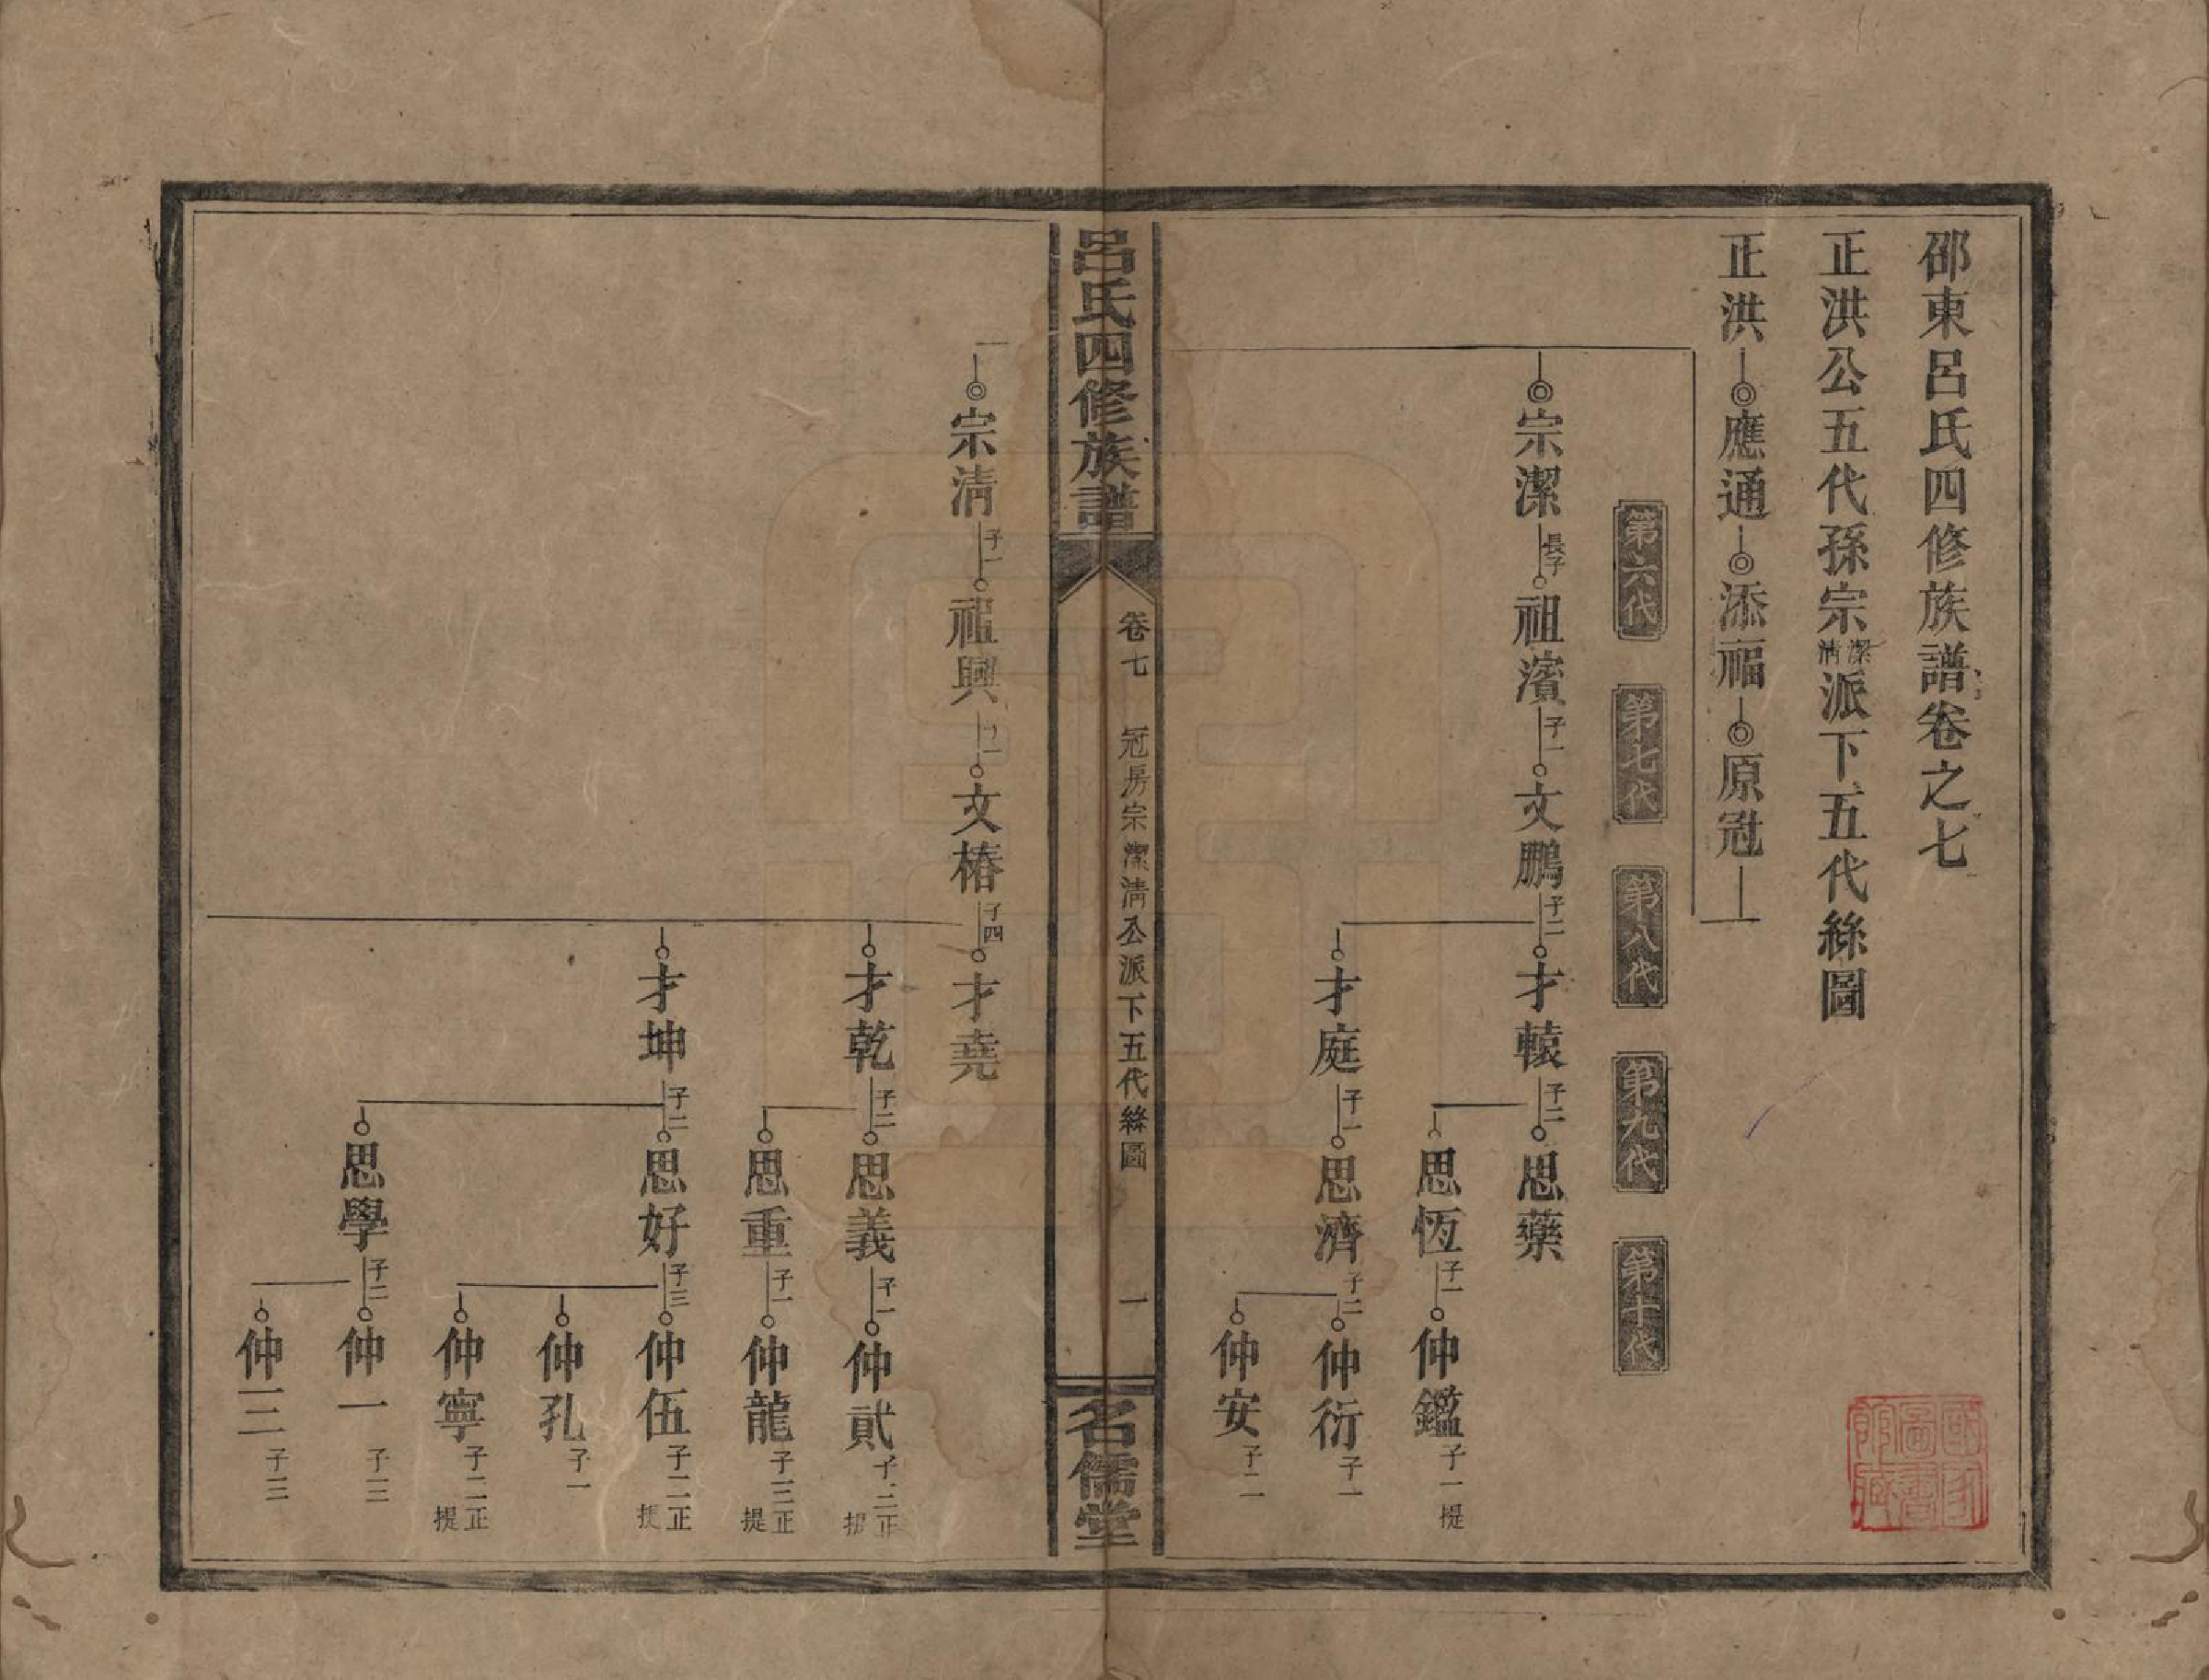 邵東呂氏四修族譜卷之七
正洪公五代孫宗潔清派下五代絲圖
正洪 應通 添福 原冠
第六代 第七代 第八代 第九代 第十代
宗潔 長子 祖濱 子一 文鵬 子二 才轅 子二 思藥
思恆 子一 仲鑑 子一 提
才庭 子一 思濟 子二 仲衍 子一
仲安 子二
呂氏四修族譜 卷七 冠房宗潔清公派下五代絲圖 一 名儒堂
宗清 子一 祖興 子一 文椿 子四 才堯
才乾 子二 思義 子一 仲貳 子二 正提
思重 子一 仲龍 子三 正提
才坤 子二 思好 子三 仲伍 子二 正提
仲孔 子一
仲寧 子二 正提
思學 子二 仲一 子三
仲三 子三